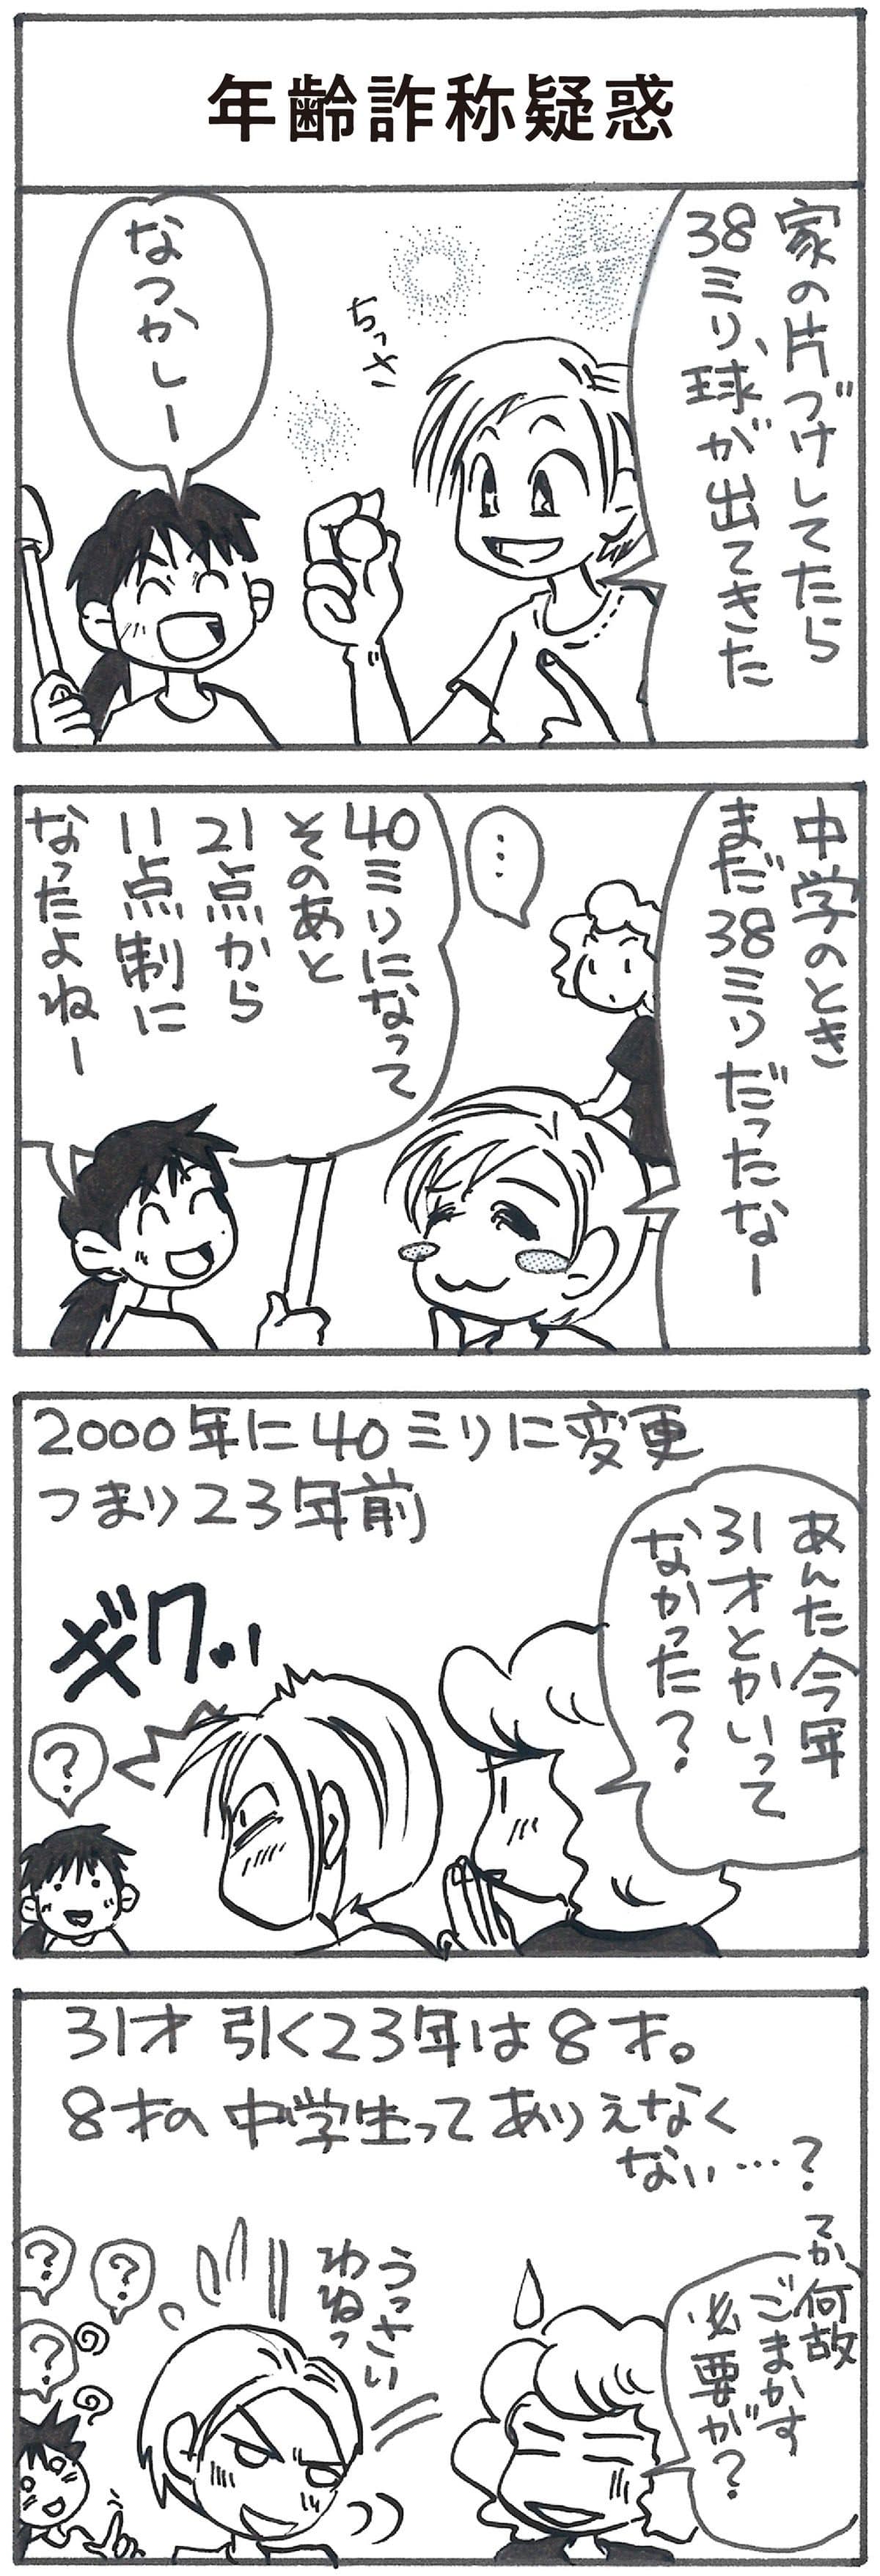 年齢詐称疑惑
家の片づけしてたら
38ミリ球が出てきた
ちっさ
なつかしー
中学のとき
まだ38ミリだったなー
…
40ミリになって
そのあと
21点から
11点制に
なったよねー
2000年に40ミリに変更
つまり23年前
あんた今年
31才とかいって
なかった?
ギクッ
?
31才引く23年は8才。
8才の中学生ってありえなく
ない…?
てか、何故
ごまかす
必要が?
うっさい
わねっ
?
?
?